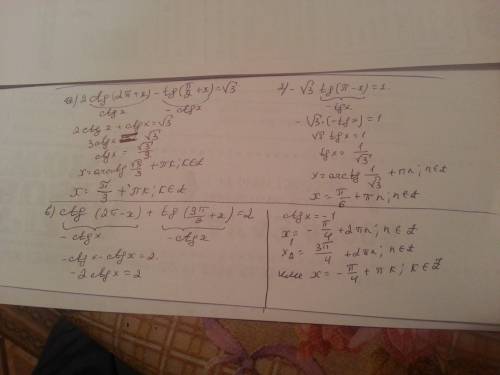 а) 2 ctg (2π+x) - tg(π/2+x) = √3
ctgx - ctgx
2ctgx + ctgx = √3
3ctgx = √3
ctgx = √3/3
x = arcctg √3/3 + πk; k∈Z
x = π/3 + πk; k∈Z
г) - √3 tg(π-x) = 1.
-tgx
-√3·(-tgx) = 1
√3 tgx = 1
tgx = 1/√3
x = arctg 1/√3 + πn; n∈Z
x = π/6 + πn; n∈Z
в) ctg (2π-x) + tg(3π/2+x) = 2
- ctgx -ctgx
-ctgx - ctgx = 2
-2ctgx = 2
ctgx = -1
x = - π/4 + 2πn; n∈Z
x = 3π/4 + 2πn; n∈Z
или x = -π/4 + πk; k∈Z